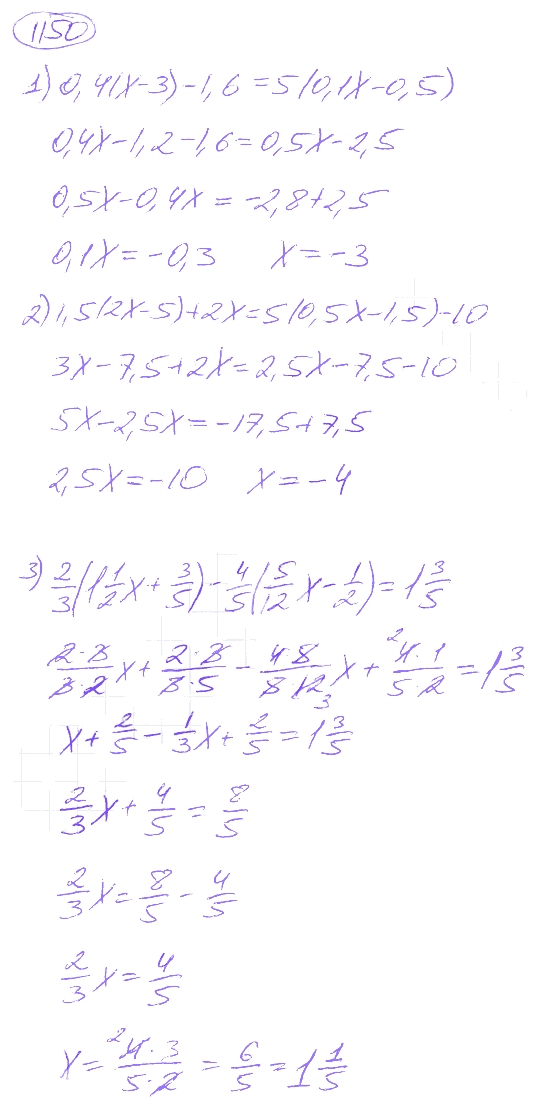 1150
1) 0,4(x-3)-1,6=5(0,1x-0,5)
0,4x-1,2-1,6=0,5x-2,5
0,5x-0,4x=-2,8+2,5
0,1x=-0,3 x=-3
2) 1,5(2x-5)+2x=5(0,5x-1,5)-10
3x-7,5+2x=2,5x-7,5-10
5x-2,5x=-17,5+7,5
2,5x=-10 x=-4
3) 2/3(1 1/2x+3/5)-4/5(5/12x-1/2)=1 3/5
2·3/3·2x+2·3/3·5-4·5/5·12 3x+2 4·1/5·2=1 3/5
x+2/5-1/3x+2/5=1 3/5
2/3x+4/5=8/5
2/3x=8/5-4/5
2/3x=4/5
x=2 4·3/5·2=6/5=1 1/5